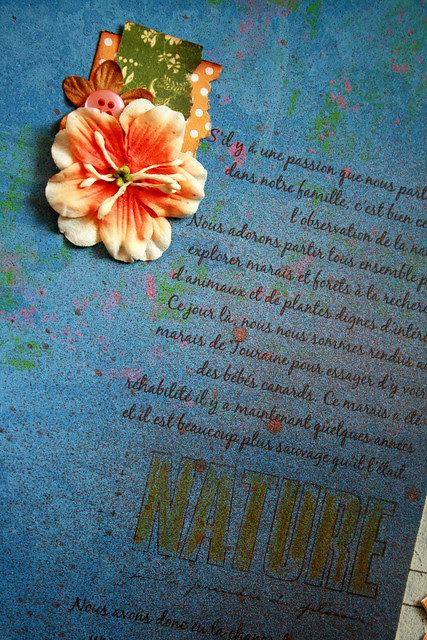 S'il y a une passion que nous part
dans notre famille, c'est bien ce
l'observation de la na
Nous adorons partir tous ensemble p
explorer marais et forêts à la recher
d'animaux et de plantes dignes d'intér
Ce jour là, nous nous sommes rendus a
marais de Touraine pour essayer d'y voir
des bébés canards. Ce marais a été
réhabilité il y a maintenant quelques années
et il est beaucoup plus sauvage qu'il l'était.
NATURE
Nous avons donc eu la chance